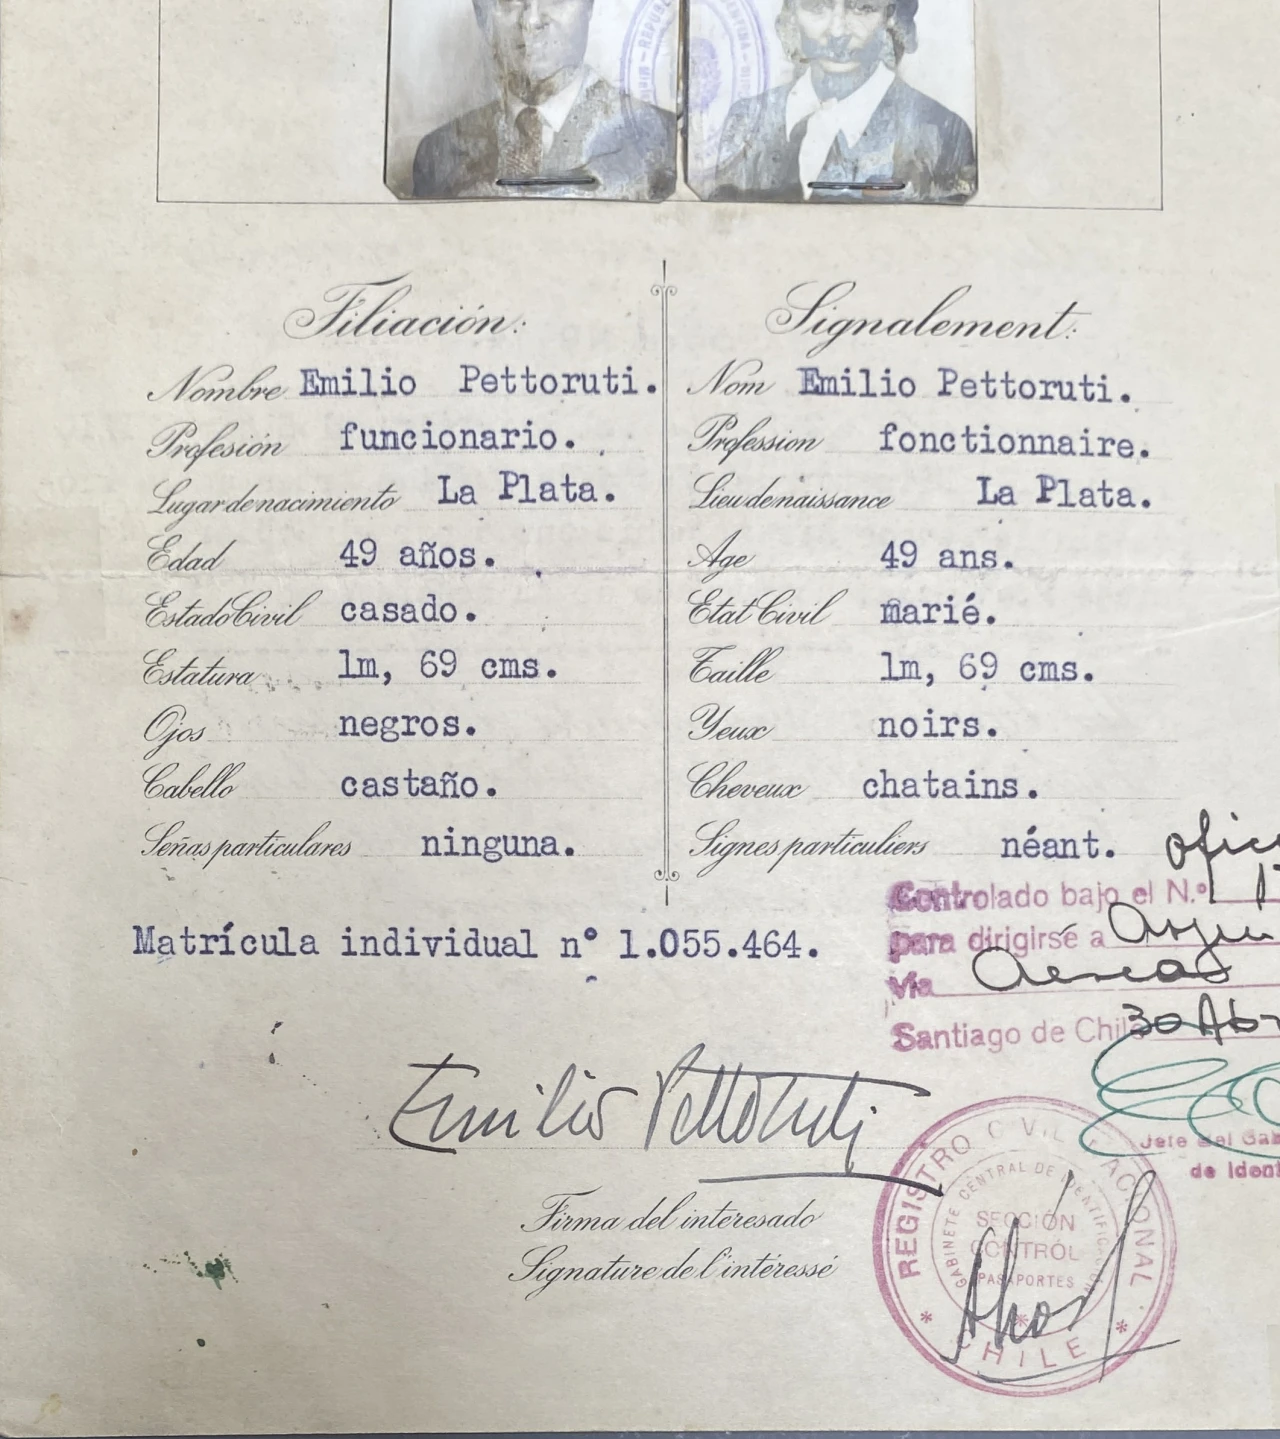 Filiación:
Nombre Emilio Pettoruti.
Profesión funcionario.
Lugar de nacimiento La Plata.
Edad 49 años.
Estado Civil casado.
Estatura 1m, 69 cms.
Ojos negros.
Cabello castaño.
Señas particulares ninguna.
Signalement:
Nom Emilio Pettoruti.
Profession fonctionnaire.
Lieu de naissance La Plata.
Age 49 ans.
Etat Civil marié.
Taille 1m, 69 cms.
Yeux noirs.
Cheveux chatains.
Signes particuliers néant.
Matrícula individual nº 1.055.464.
Controlado bajo el N.º
para dirigirse a
Vía
Santiago de Chile 30 Abr
Emilio Pettoruti
Firma del interesado
Signature de l'intéressé
Jefe del Gab
de Ident
REGISTRO CIVIL NACIONAL
GABINETE CENTRAL DE IDENTIFICACION
SECCIÓN
CONTROL
PASAPORTES
CHILE